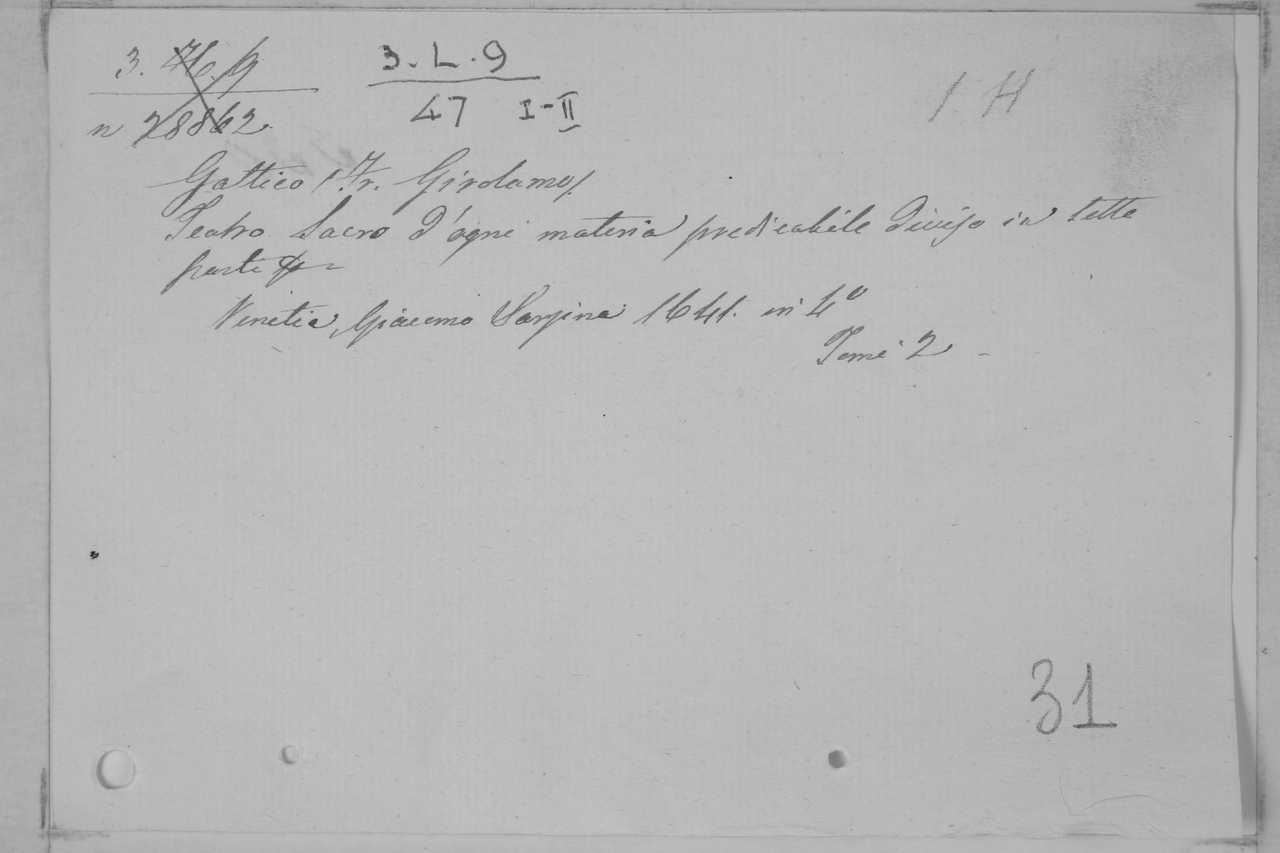 3. H. 9
3.L.9
47 I-II
1. H
n 28862
Gattico (Fr. Girolamo)
Teatro Sacro d'ogni materia predicabile diviso in sette
parti
Venetia, Giacomo Sarzina 1641. in 4º
Tomi 2 -
31